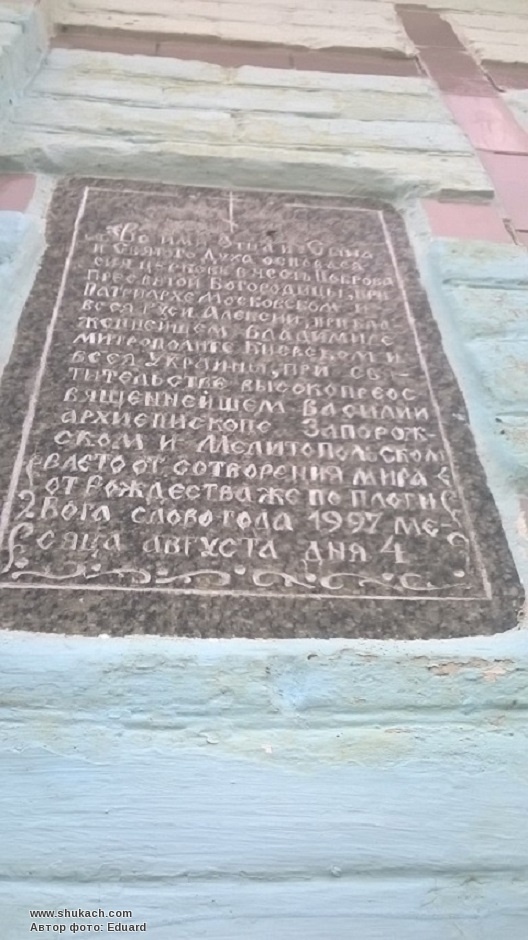 Во имя Отца и Сына
и Святого Духа основася
сия церковь в честь Покрова
Пресвятой Богородицы, при
Патриархе Московском и
всея Руси Алексии, при бла-
женнейшем Владимире
митрополите Киевском и
всея Украины, при свя-
тительстве высокопреос-
вященнейшем Василии
архиепископе Запорож-
ском и Мелитопольском
в лето от сотворения мира
от Рождества же по плоти
Бога слова года 1997 ме-
сяца августа дня 4
www.shukach.com
Автор фото: Eduard